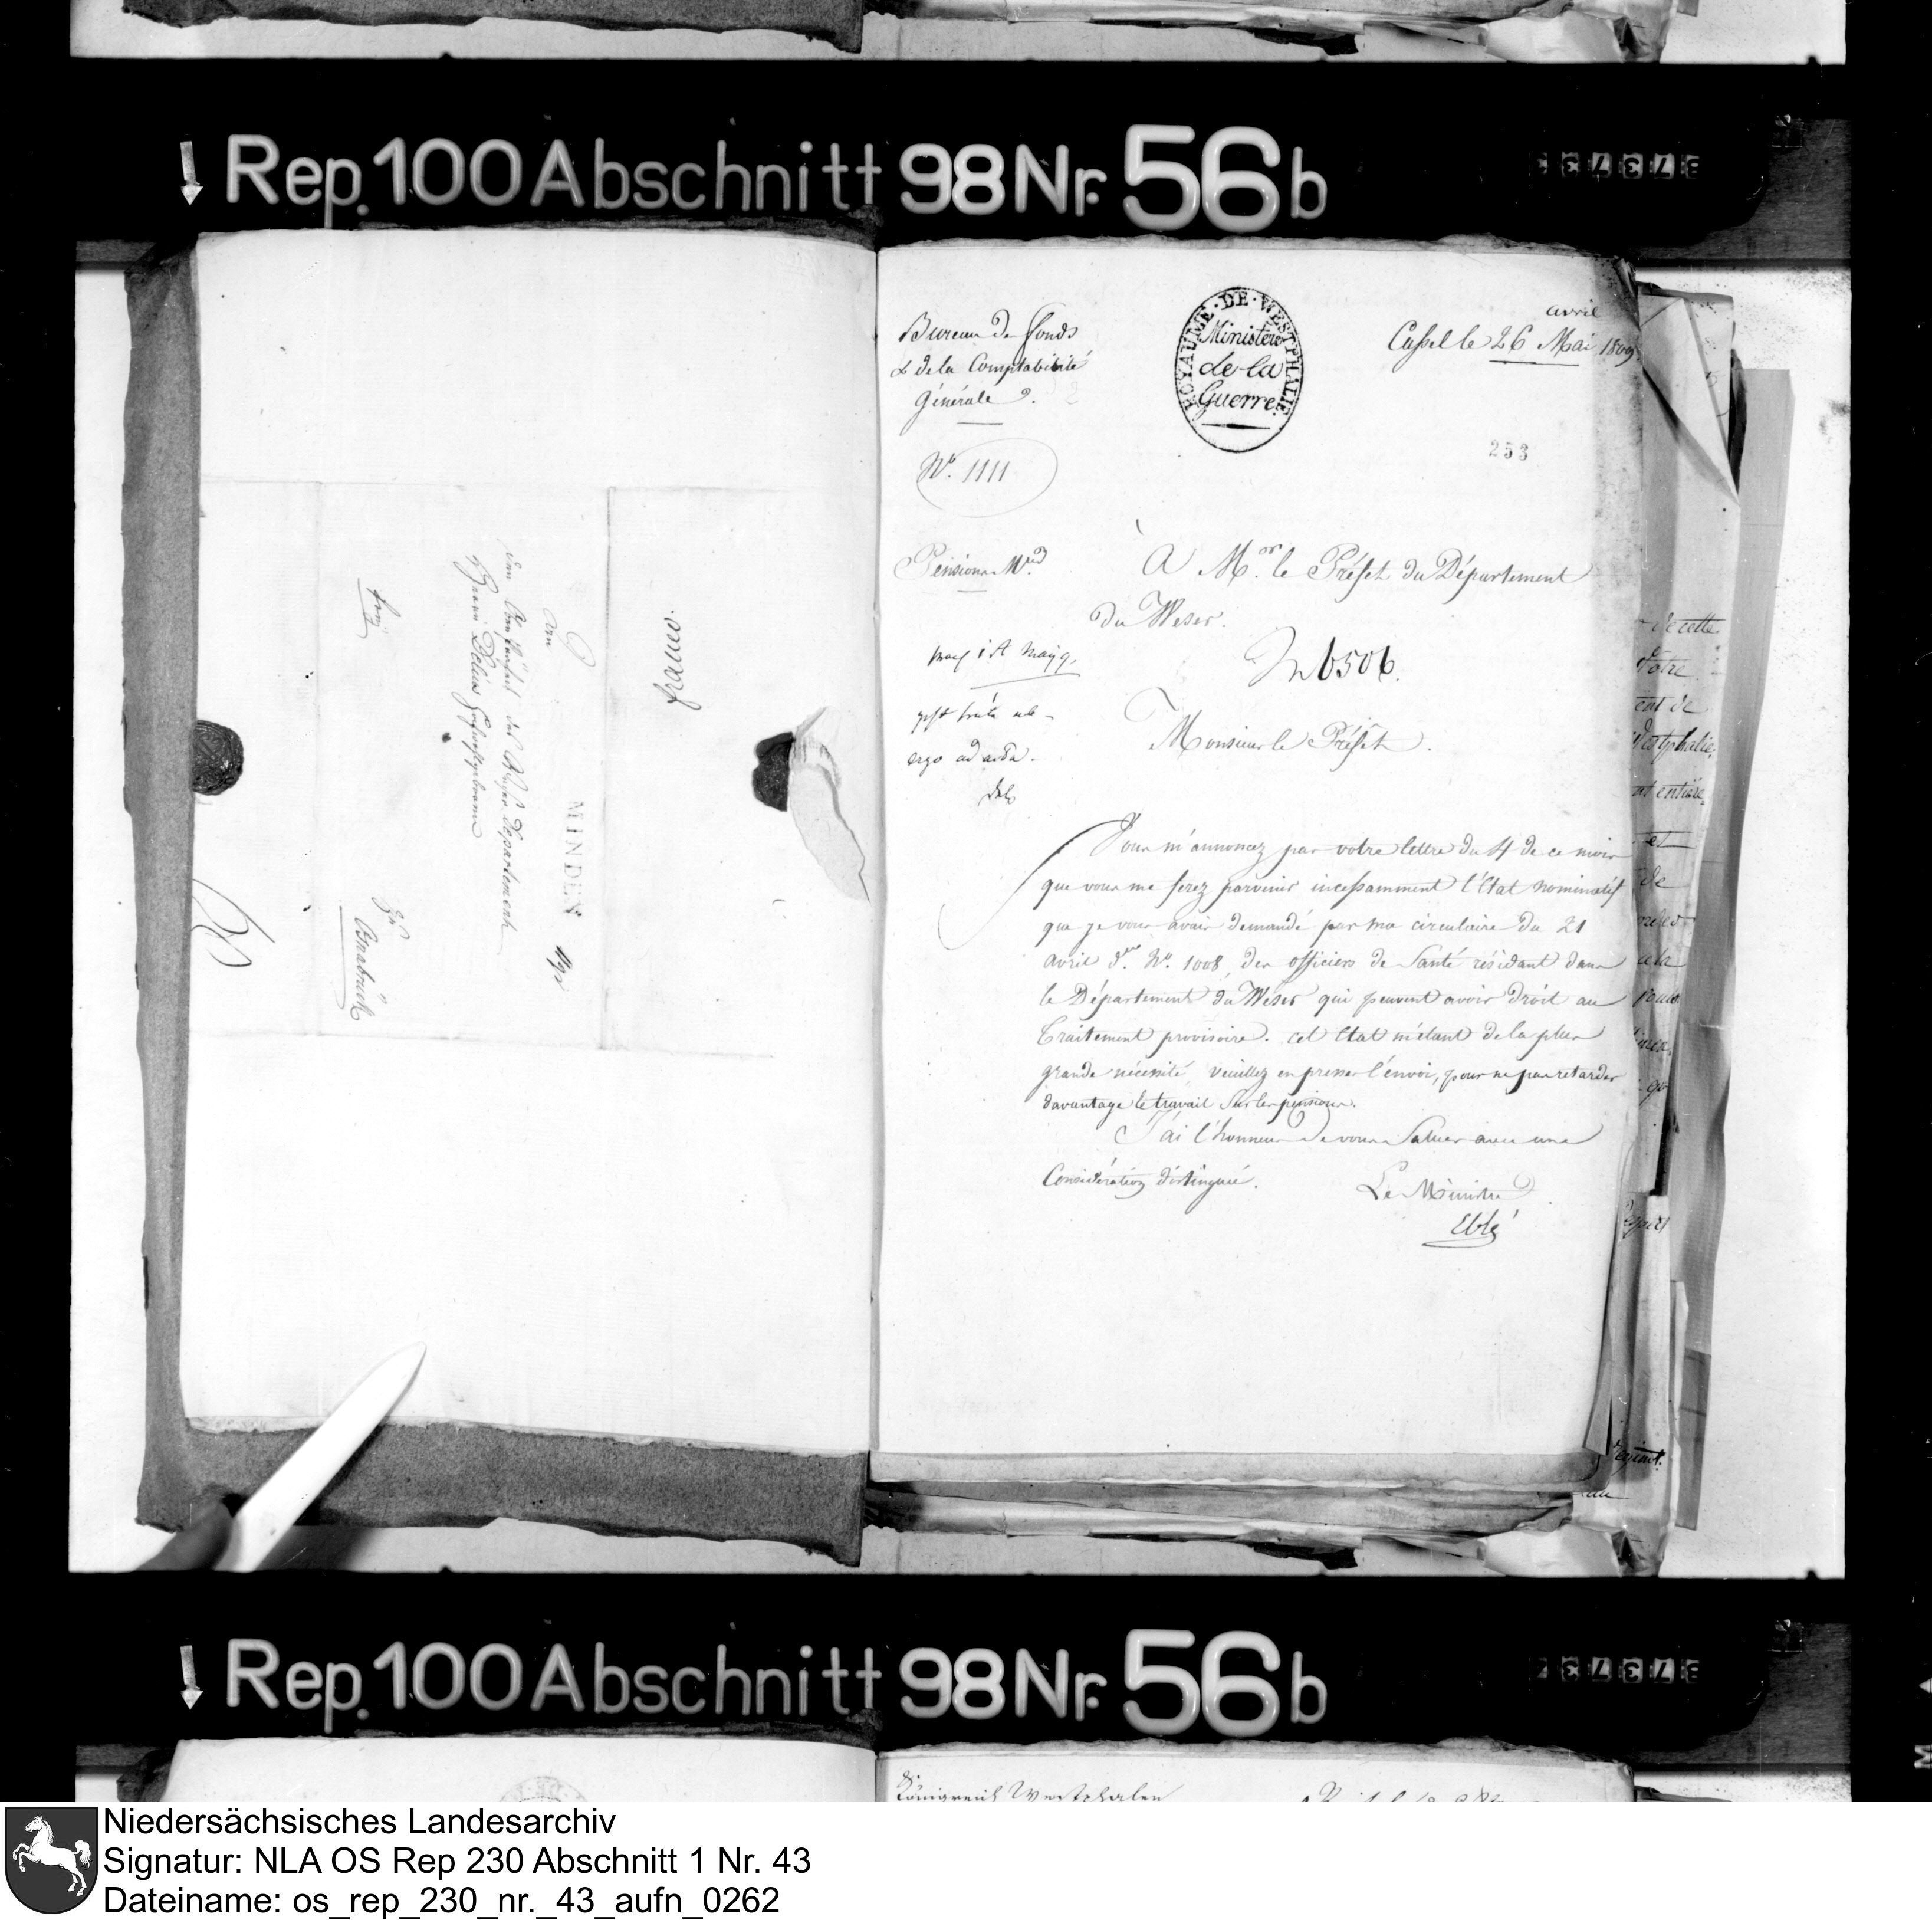 Rep. 100 Abschnitt 98 Nr. 56 b
franco.
MINDEN
An
den Präfect des Weser Departements
Herrn Delius Hochwohlgeboren
zu
Osnabrück
Bureau des fonds
& de la Comptabilité
Générale
ROYAUME · DE · WESTPHALIE ·
Ministère
de la
Guerre
avril
Cassel le 26 Mai 1809
253
N°. 1111
Pensions
A Mr. le Préfet du Département
du Weser.
6506.
ergo ad acta.
Monsieur le Préfet.
Vous m'annoncez par votre lettre du 4 de ce mois
que vous me ferez parvenir incessamment l'état nominatif
que je vous avais demandé par ma circulaire du 21
avril der. N°. 1008, des officiers de Santé résidant dans
le Département du Weser qui peuvent avoir droit au
Traitement provisoire. cet état m'étant de la plus
grande nécessité, veuillez en presser l'envoi, pour ne pas retarder
davantage le travail sur les pensions.
J'ai l'honneur de vous saluer avec une
Considération distinguée.
Le Ministre
Eblé
de cette
Votre
Westphalie
et
de
Rep. 100 Abschnitt 98 Nr. 56 b
Königreich Westphalen
Niedersächsisches Landesarchiv
Signatur: NLA OS Rep 230 Abschnitt 1 Nr. 43
Dateiname: os_rep_230_nr._43_aufn_0262